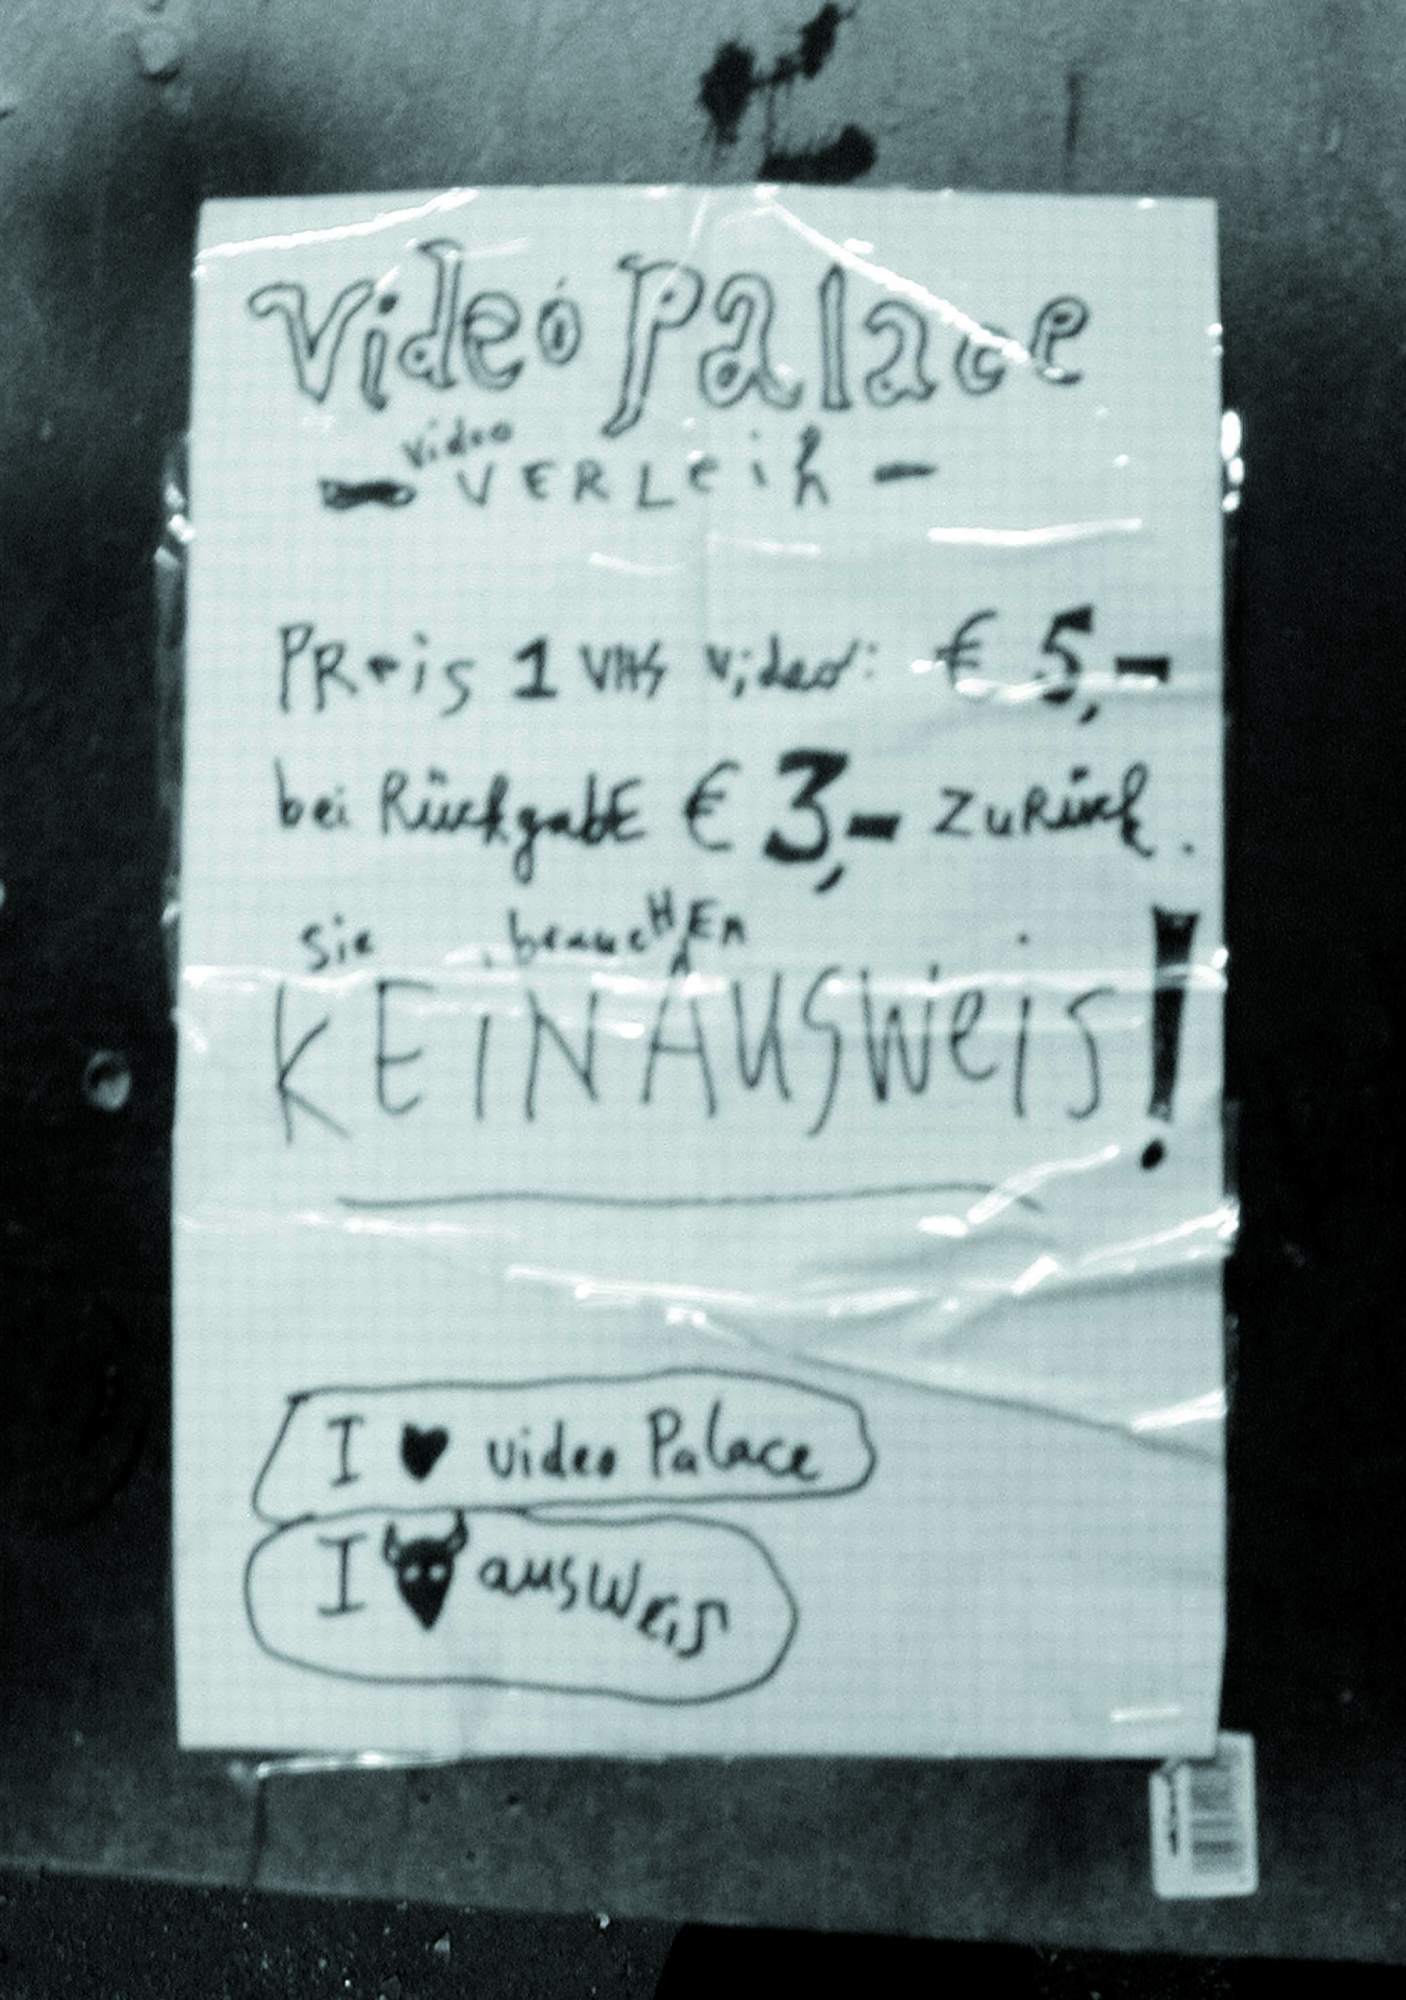 Video Palace
video
- VERLeih -
PReis 1 VHS Video: € 5,-
bei RückgabE € 3,- zuRück.
Sie braucHEn
KEiN AusWeis!
I ♥ video Palace
I ausWEiS